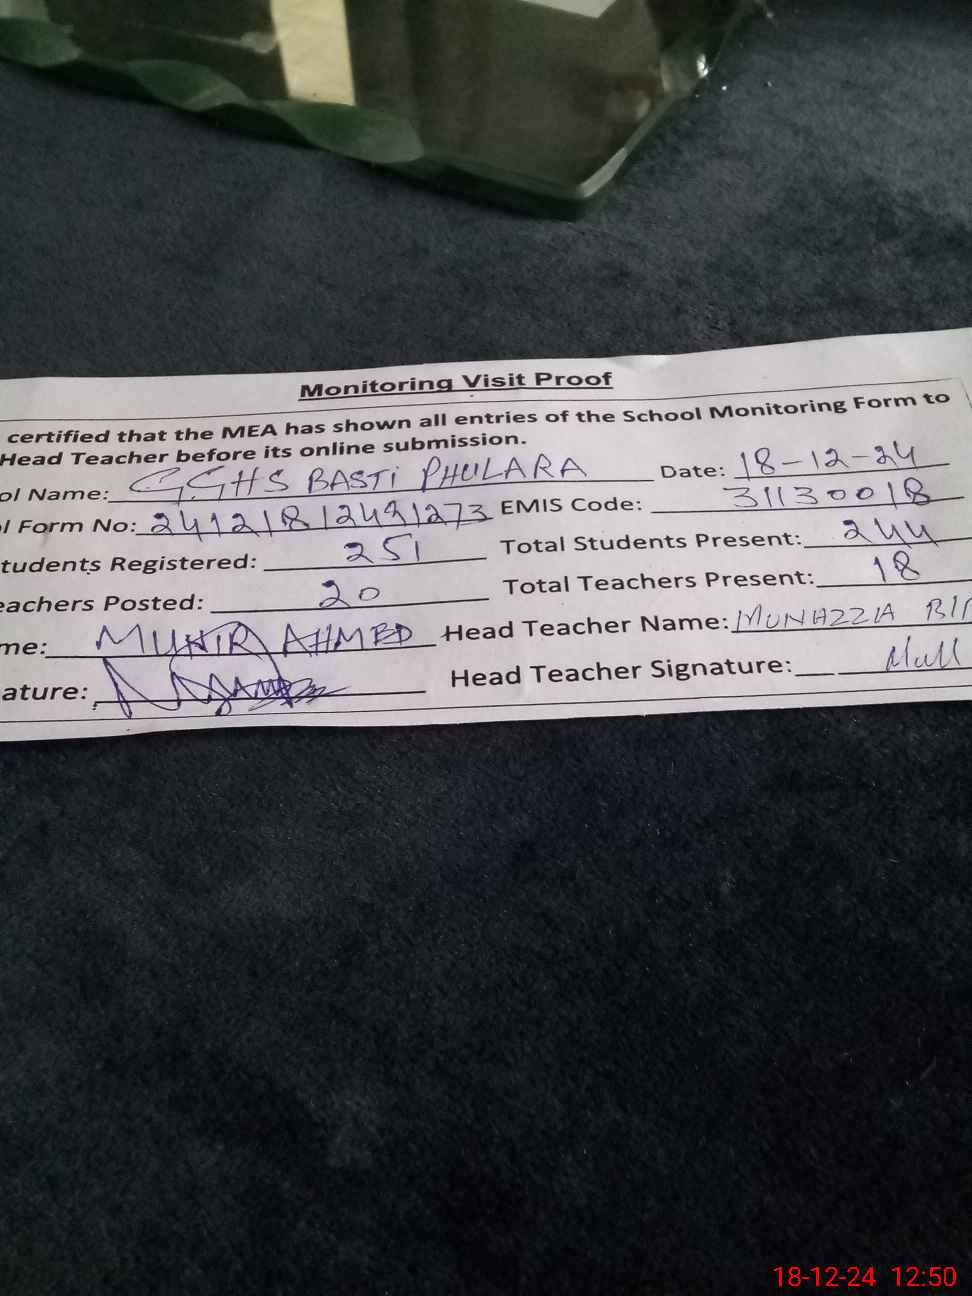 Monitoring Visit Proof
certified that the MEA has shown all entries of the School Monitoring Form to
Head Teacher before its online submission.
ol Name: GGHS BASTI PHULARA Date: 18-12-24
l Form No: 24121812491273 EMIS Code: 31130018
tudents Registered: 251 Total Students Present: 244
eachers Posted: 20 Total Teachers Present: 18
me: MUNIR AHMED Head Teacher Name: MUNAZZIA BI
ature: Head Teacher Signature:
18-12-24 12:50